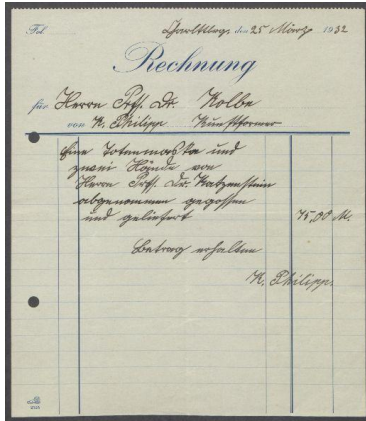 Tel.
Charlttbg, den 25 März 1932
Rechnung
für Herrn Prof. Dr. Kolbe
von K. Philipp Kunstformer
Eine Totenmaske und
zwei Hände von
Herrn Prof. Dr. Katzenstein
abgenommen gegossen
und geliefert 75,00 M.
Betrag erhalten
K. Philipp.